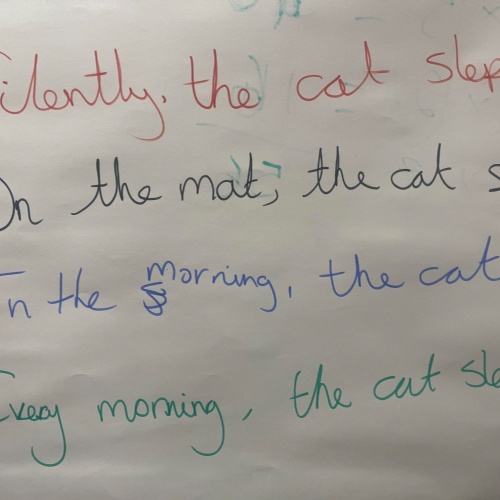 ilently, the cat slep
On the mat, the cat s
In the morning, the cat
Every morning, the cat sle